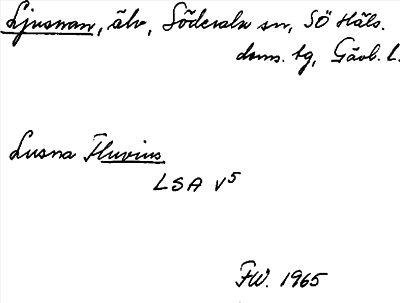 Ljusnan, älv, Söderala sn, SÖ Häls.
doms. tg, Gävb. l.
Lusna Fluvius
LSA V5
FW. 1965